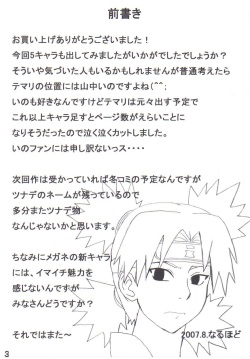 前書き
お買い上げありがとうございました！
今回5キャラも出してみましたがいかがでしたでしょうか？
そういや気づいた人もいるかもしれませんが普通考えたら
テマリの位置には山中いのですよね(^^;
いのも好きなんですけどテマリは元々出す予定で
これ以上キャラ足すとページ数がえらいことに
なりそうだったので泣く泣くカットしました！
いのファンには申し訳ないっス・・・・
次回作は受かっていれば冬コミの予定なんですが
ツナデのネームが残っているので
多分またツナデ物
なんじゃないかと思います。
ちなみにメガネの新キャラ
には、イマイチ魅力を
感じないんですが
みなさんどうですか？
それではまた〜
2007.8.なるほど
3